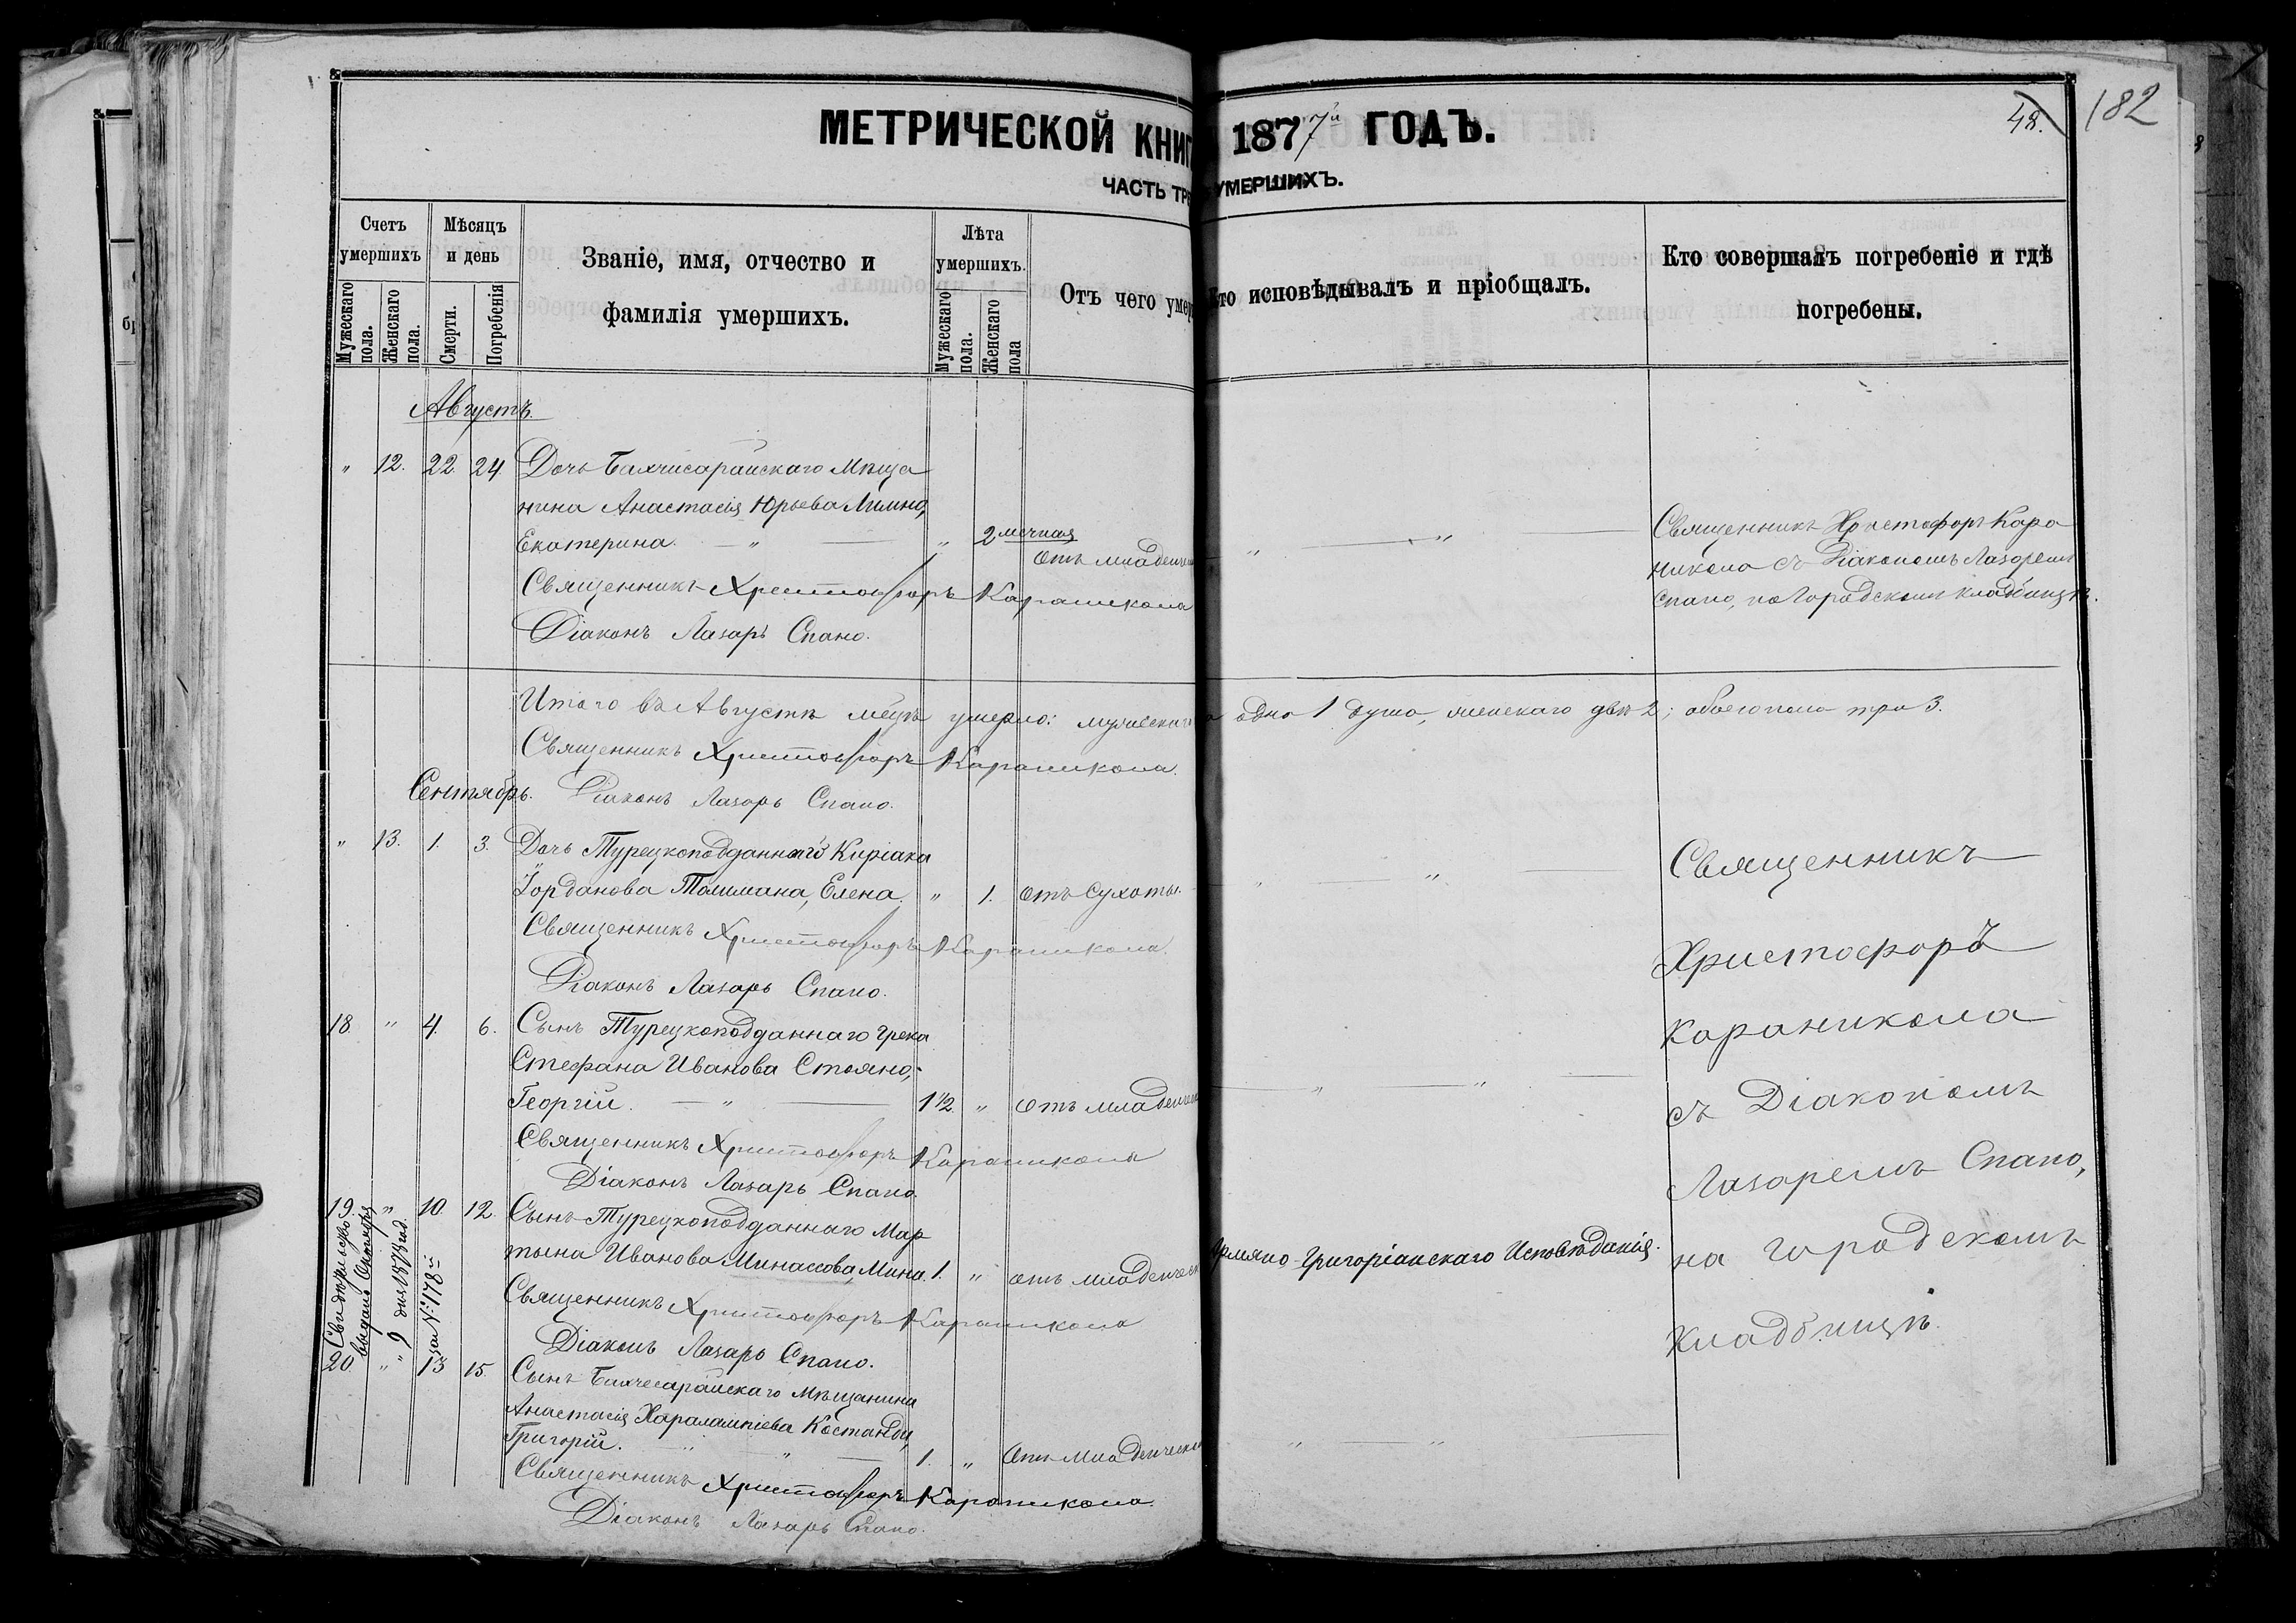 МЕТРИЧЕСКОЙ КНИГ 1877й ГОДЪ.
48. 182
ЧАСТЬ ТРЕ УМЕРШИХЪ.
Счетъ умершихъ
Мужескаго пола.
Женскаго пола.
Мѣсяцъ и день
Смерти.
Погребенія
Званіе, имя, отчество и
фамилія умершихъ.
Лѣта умершихъ.
Мужескаго пола.
Женскаго пола
Отъ чего умер
Кто исповѣдывалъ и пріобщалъ.
Кто совершалъ погребеніе и гдѣ
погребены.
Августъ.
" 12. 22 24 Дочь Бахчисарайскаго Мѣща
нина Анастасія Юрьева
Екатерина. — " — " 2 мѣсчная
Отъ младенчес " — " —
Священникъ Христофоръ Кара
никола съ Діакономъ Лазаремъ
Спано, на Городскомъ кладбищѣ.
Священникъ Христофоръ Караникола
Діаконъ Лазарь Спано.
Итого въ Августѣ мѣцѣ умерло: мужескаго одна 1 душа, женскаго двѣ 2; обоего пола три 3.
Священникъ Христофоръ Караникола.
Сентябрь. Діаконъ Лазарь Спано.
" 13. 1. 3. Дочь Турецкоподданнаго Киріака
Іорданова Елена. " 1. отъ Сухоты. " — " —
Священникъ Христофоръ Караникола.
Діаконъ Лазарь Спано.
18 " 4. 6. Сынъ Турецкоподданнаго Грека
Стефана Иванова Стояно,
Георгій. — " — 1 1/2 " отъ младенчес — " — " —
Священникъ Христофоръ Караникола
Діаконъ Лазарь Спано.
19. " 10. 12. Сынъ Турецкоподданнаго Мар
тына Иванова Минассова, Мина. 1. " отъ младенческ
Армяно-Григоріанскаго Исповѣданія.
Священникъ Христофоръ Караникола
Діаконъ Лазарь Спано.
Свидѣтельство
выдано Октября
9 дня 187 год.
за №178.
20. " 13 15. Сынъ Бахчесарайскаго Мѣщанина
Анастасія Харалампіева Костанди,
Григорій. " " — 1. " Отъ Младенческ " — " —
Священникъ Христофоръ Караникола.
Діаконъ Лазарь Спано.
Священникъ
Христофоръ
Караникола
съ Діакономъ
Лазаремъ Спано,
на городскомъ
кладбищѣ.